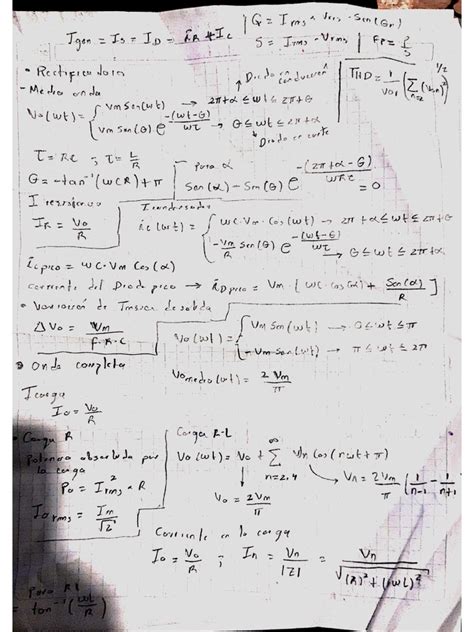 Igen = Is = ID = iR + Ic | Qr = Irms * Vrms - Sen(Θr)
S = Irms - Vrms | Fp = P/S
• Rectificadores
- Media onda
→ Diodo en conducción
Vo(wt) = { Vm Sen(wt) → 2π+α ≤ wt ≤ 2π+θ
Vm Sen(θ) e^(-(wt-θ)/wτ) → θ ≤ wt ≤ 2π+α
↳ Diodo en corte
THD = 1/Vo1 (∑ n=2 (Vn)²)^1/2
τ = RC ; τ = L/R
θ = -tan⁻¹(wCR) + π
para α
Sen(α) - Sen(θ) e^(-(2π+α-θ)/wRC) = 0
I resistencia
IR = Vo/R
I condensador
ic(wt) = { wC·Vm·Cos(wt) → 2π+α ≤ wt ≤ 2π+θ
-Vm/R Sen(θ) e^(-(wt-θ)/wτ) → θ ≤ wt ≤ 2π+α
icpico = wC·Vm Cos(α)
corriente del Diodo pico → iDpico = Vm·[wC·Cos(α) + Sen(α)/R]
• Variación de Tensión de salida
ΔVo = Vm/F·R·C
Vo(wt) = { Vm Sen(wt) → 0 ≤ wt ≤ π
-Vm Sen(wt) → π ≤ wt ≤ 2π
• Onda completa
Vomedio(wt) = 2Vm/π
I carga
Io = Vo/R
- Carga R
Potencia absorbida por
la carga
Po = I²rms * R
Iorms = Im/√2
Carga R-L
Vo(wt) = Vo + ∑ n=2,4 ∞ Vn Cos(nwt+π)
Vo = 2Vm/π
Vn = 2Vm/π (1/n-1 - 1/n+1)
Corriente en la carga
Io = Vo/R ; In = Vn/|Z| = Vn/√((R)²+(nwL)²)
Para RL
= tan⁻¹(wL/R)